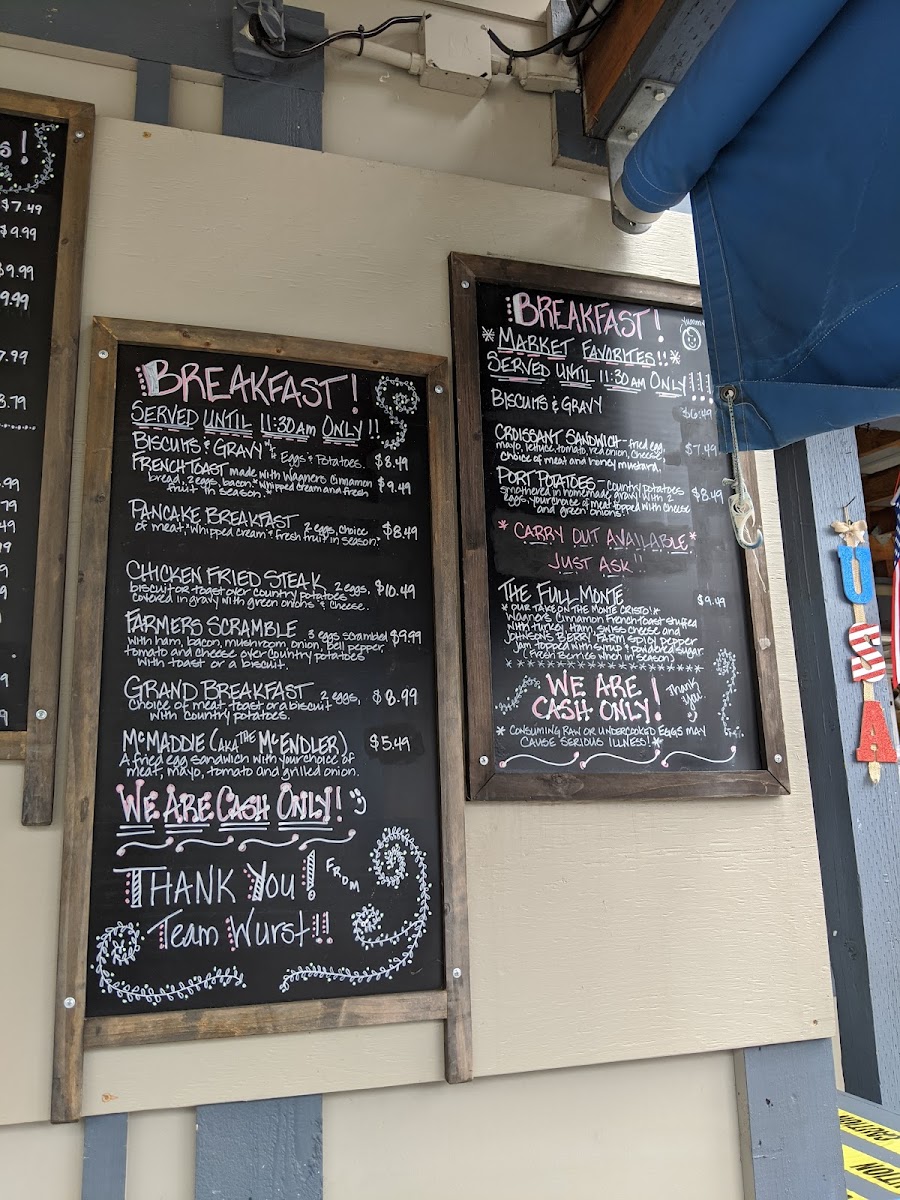 s!
$7.49
$9.99
$9.99
9.99
7.99
8.79
.99
.79
.49
BREAKFAST!
SERVED UNTIL 11:30am ONLY!!
BISCUITS & GRAVY Eggs & Potatoes. $8.49
FRENCH TOAST made with Wagners Cinnamon $9.49
bread, 2 eggs, bacon, whipped cream and fresh
fruit in season.
PANCAKE BREAKFAST 2 eggs, choice $8.49
of meat, whipped cream & fresh fruit in season.
CHICKEN FRIED STEAK 2 eggs, $10.49
biscuit or toast over country potatoes
covered in gravy with green onions & cheese.
FARMERS SCRAMBLE 3 eggs scrambled $9.99
with ham, bacon, mushroom, onion, bell pepper,
tomato and cheese over country potatoes
with toast or a biscuit.
GRAND BREAKFAST 2 eggs, $8.99
choice of meat, toast or a biscuit
with country potatoes.
McMADDIE (AKA THE McENDLER) $5.49
A fried egg sandwich with your choice of
meat, mayo, tomato and grilled onion.
WE ARE CASH ONLY!
THANK YOU! FROM
Team Wurst!!
BREAKFAST!
yummy
* MARKET FAVORITES!! *
SERVED UNTIL 11:30 AM ONLY!!!
BISCUITS & GRAVY $6.49
CROISSANT SANDWICH - fried egg, $7.49
mayo, lettuce, tomato, red onion, cheese,
choice of meat and honey mustard.
PORT POTATOES - country potatoes $8.49
smothered in homemade gravy with 2
eggs, your choice of meat topped with cheese
and green onions.
* CARRY OUT AVAILABLE *
JUST ASK!!
THE FULL MONTE $9.49
* OUR TAKE ON THE MONTE CRISTO! *
Wagner's Cinnamon French toast stuffed
with turkey, Ham, swiss cheese and
JOHNSONS BERRY FARM spicy pepper
jam topped with syrup & powdered sugar.
(Fresh Berries when in season)
WE ARE
CASH ONLY!
Thank you
* CONSUMING RAW OR UNDERCOOKED EGGS MAY
CAUSE SERIOUS ILLNESS! *
USA
CAUTION
CAUTION